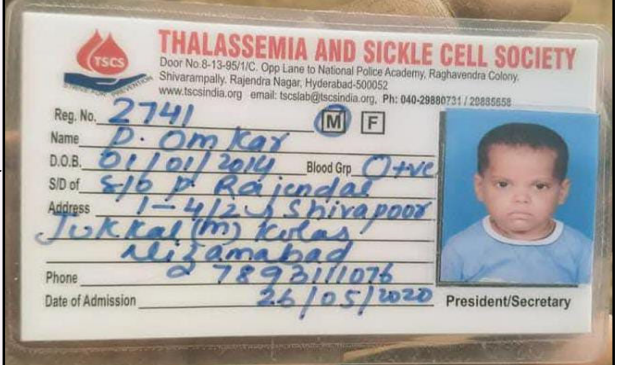 TSCS
THALASSEMIA AND SICKLE CELL SOCIETY
Door No.8-13-95/1/C. Opp Lane to National Police Academy, Raghavendra Colony,
Shivarampally, Rajendra Nagar, Hyderabad-500052
www.tscsindia.org email: tscslab@tscsindia.org, Ph: 040-29880731 / 20885658
Reg. No. 2741 M F
Name P. Omkar
D.O.B. 01/01/2014 Blood Grp O+ve
S/D of S/o P. Rajendar
Address 1-4/2 Shivapoor
Jukkal (m)
Nizamabad
Phone 7893111076
Date of Admission 26/05/2020 President/Secretary